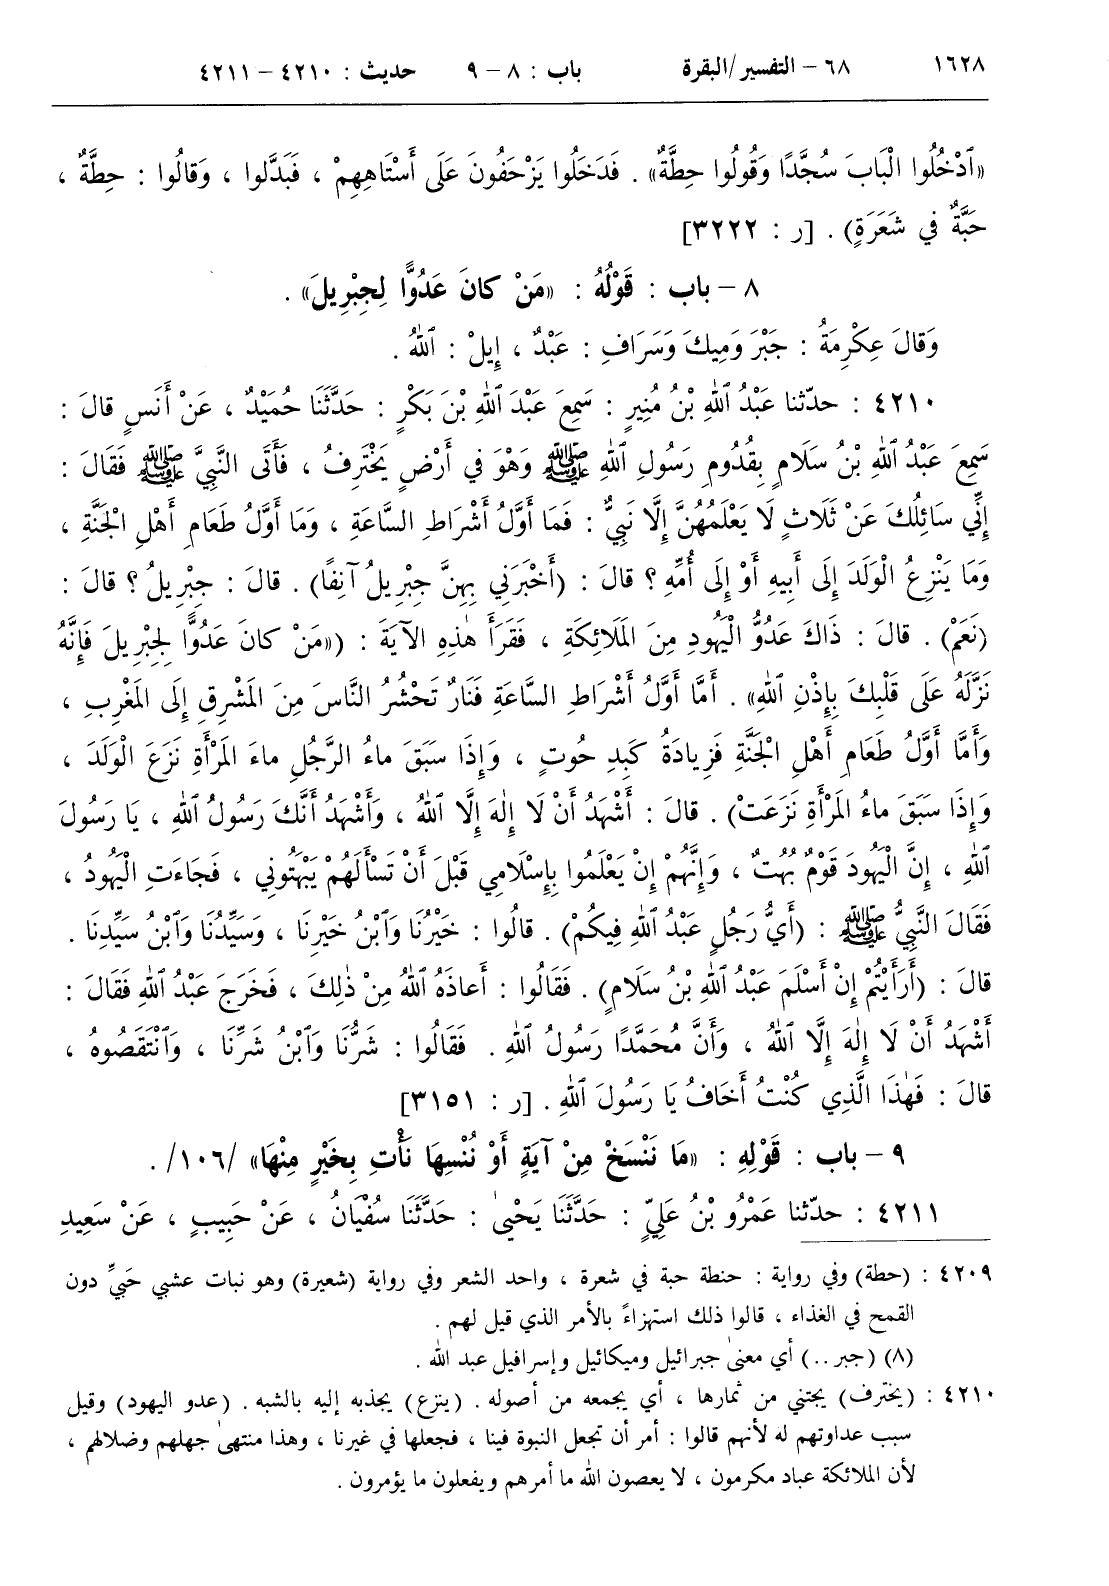 ١٦٢٨ ٦٨ – التفسير/البقرة باب : ٨ – ٩ حديث : ٤٢١٠ – ٤٢١١
«ٱدْخُلُوا الْبَابَ سُجَّدًا وَقُولُوا حِطَّةٌ» . فَدَخَلُوا يَزْحَفُونَ عَلَى أَسْتَاهِهِمْ ، فَبَدَّلوا ، وَقالُوا : حِطَّةٌ ،
حَبَّةٌ فِي شَعَرَةٍ) . [ر : ٣٢٢٢]
٨ – باب : قَوْلُهُ : «مَنْ كانَ عَدُوًّا لِجِبْرِيلَ» .
وَقالَ عِكْرِمَةُ : جَبْرَ وَمِيكَ وَسَرَافِ : عَبْدٌ ، إِيلْ : ٱللهُ .
٤٢١٠ : حدّثنا عَبْدُ ٱللهِ بْنُ مُنِيرٍ : سَمِعَ عَبْدَ ٱللهِ بْنَ بَكْرٍ : حَدَّثَنَا حُمَيْدٌ ، عَنْ أَنَسٍ قالَ :
سَمِعَ عَبْدُ ٱللهِ بْنُ سَلَامٍ بِقُدُومِ رَسُولِ ٱللهِ ﷺ وَهْوَ فِي أَرْضٍ يَخْتَرِفُ ، فَأَتَى النَّبِيَّ ﷺ فَقَالَ :
إِنِّي سَائِلُكَ عَنْ ثَلَاثٍ لَا يَعْلَمُهُنَّ إِلَّا نَبِيٌّ : فَمَا أَوَّلُ أَشْرَاطِ السَّاعَةِ ، وَمَا أَوَّلُ طَعَامِ أَهْلِ الْجَنَّةِ ،
وَمَا يَنْزِعُ الْوَلَدَ إِلَى أَبِيهِ أَوْ إِلَى أُمِّهِ ؟ قالَ : (أَخْبَرَنِي بِهِنَّ جِبْرِيلُ آنِفًا) . قالَ : جِبْرِيلُ ؟ قالَ :
(نَعَمْ) . قالَ : ذَاكَ عَدُوُّ الْيَهُودِ مِنَ الْمَلَائِكَةِ ، فَقَرَأَ هٰذِهِ الآيَةَ : («مَنْ كانَ عَدُوًّا لِجِبْرِيلَ فَإِنَّهُ
نَزَّلَهُ عَلَى قَلْبِكَ بِإِذْنِ ٱللهِ» . أَمَّا أَوَّلُ أَشْرَاطِ السَّاعَةِ فَنَارٌ تَحْشُرُ النَّاسَ مِنَ الْمَشْرِقِ إِلَى الْمَغْرِبِ ،
وَأَمَّا أَوَّلُ طَعَامِ أَهْلِ الْجَنَّةِ فَزِيادَةُ كَبِدِ حُوتٍ ، وَإِذَا سَبَقَ ماءُ الرَّجُلِ ماءَ الْمَرْأَةِ نَزَعَ الْوَلَدَ ،
وَإِذَا سَبَقَ ماءُ الْمَرْأَةِ نَزَعَتْ) . قالَ : أَشْهَدُ أَنْ لَا إِلٰهَ إِلَّا ٱللهُ ، وَأَشْهَدُ أَنَّكَ رَسُولُ ٱللهِ ، يَا رَسُولَ
ٱللهِ ، إِنَّ الْيَهُودَ قَوْمٌ بُهُتٌ ، وَإِنَّهُمْ إِنْ يَعْلَمُوا بِإِسْلَامِي قَبْلَ أَنْ تَسْأَلَهُمْ يَبْهَتُونِي ، فَجَاءَتِ الْيَهُودُ ،
فَقَالَ النَّبِيُّ ﷺ : (أَيُّ رَجُلٍ عَبْدُ ٱللهِ فِيكُمْ) . قالُوا : خَيْرُنَا وَٱبْنُ خَيْرِنَا ، وَسَيِّدُنَا وَٱبْنُ سَيِّدِنَا .
قالَ : (أَرَأَيْتُمْ إِنْ أَسْلَمَ عَبْدُ ٱللهِ بْنُ سَلَامٍ) . فَقَالُوا : أَعاذَهُ ٱللهُ مِنْ ذٰلِكَ ، فَخَرَجَ عَبْدُ ٱللهِ فَقَالَ :
أَشْهَدُ أَنْ لَا إِلٰهَ إِلَّا ٱللهُ ، وَأَنَّ مُحَمَّدًا رَسُولُ ٱللهِ . فَقَالُوا : شَرُّنَا وَٱبْنُ شَرِّنَا ، وَٱنْتَقَصُوهُ ،
قالَ : فَهٰذَا الَّذِي كُنْتُ أَخَافُ يَا رَسُولَ ٱللهِ . [ر : ٣١٥١]
٩ – باب : قَوْلِهِ : «مَا نَنْسَخْ مِنْ آيَةٍ أَوْ نُنْسِهَا نَأْتِ بِخَيْرٍ مِنْهَا» /١٠٦/ .
٤٢١١ : حدّثنا عَمْرُو بْنُ عَلِيٍّ : حَدَّثَنَا يَحْيىٰ : حَدَّثَنَا سُفْيَانُ ، عَنْ حَبِيبٍ ، عَنْ سَعِيدِ
٤٢٠٩ : (حطة) وفي رواية : حنطة حبة في شعرة ، واحد الشعر وفي رواية (شعيرة) وهو نبات عشبي حَبيٌّ دون
القمح في الغذاء ، قالوا ذلك استهزاءً بالأمر الذي قيل لهم .
(٨) (جبر ..) أي معنىٰ جبرائيل وميكائيل وإسرافيل عبد الله .
٤٢١٠ : (يخترف) يجتني من ثمارها ، أي يجمعه من أصوله . (ينزع) يجذبه إليه بالشبه . (عدو اليهود) وقيل
سبب عداوتهم له لأنهم قالوا : أمر أن تجعل النبوة فينا ، فجعلها في غيرنا ، وهذا منتهىٰ جهلهم وضلالهم ،
لأن الملائكة عباد مكرمون ، لا يعصون الله ما أمرهم ويفعلون ما يؤمرون .